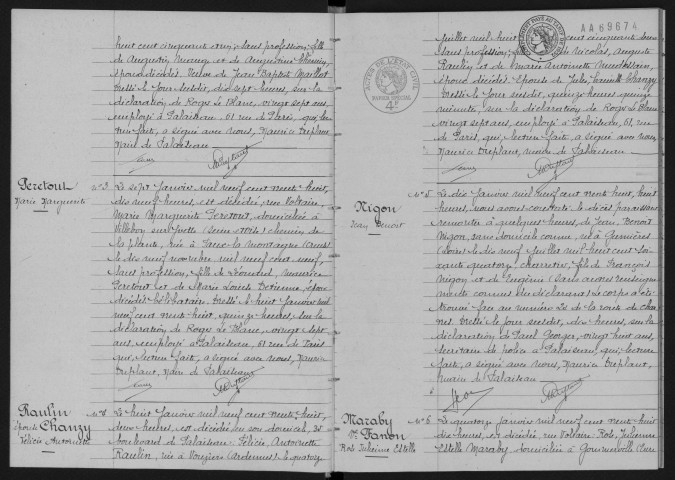 huit cent cinquante
sans profession, fille
de Augustin et de Augustine
époux décédés, Veuve de Jean Baptiste Maillot
Dressé le jour susdit, dix sept heures, sur la
déclaration de Roger Le Blanc, vingt sept ans,
employé à Palaiseau, 61 rue de Paris, qui, lec-
ture faite, a signé avec nous, Maurice Dreplant,
Maire de Palaiseau
Peretout
Marie Marguerite
N° 3. Le sept janvier mil neuf cent trente huit,
dix neuf heures, est décédée, rue Voltaire,
Marie Marguerite Peretout, domiciliée à
Villebon sur Yvette (Seine et Oise) chemin de
la plante, née à
le dix neuf novembre mil neuf cent neuf,
sans profession, fille de Edouard, Maurice
Peretout et de Marie Louise époux
décédés, célibataire. Dressé le huit janvier mil
neuf cent trente huit, quinze heures, sur la
déclaration de Roger Le Blanc, vingt sept
ans, employé à Palaiseau, 61 rue de Paris
qui, lecture faite, a signé avec nous, Maurice
Dreplant, Maire de Palaiseau
Raulin
épouse Chanzy
Félicie Antoinette
N° 4. Le huit janvier mil neuf cent trente huit,
deux heures, est décédée en son domicile, 35
boulevard de Palaiseau Félicie, Antoinette
Raulin, née à Vouziers (Ardennes) le quatorze
AA69674
ACTES DE L'ETAT CIVIL
juillet mil huit cent cinquante
sans profession, de Nicolas, Auguste
Raulin et de Marie Antoinette
époux décédés. Epouse de Jules Chanzy
Dressé le jour susdit, quinze heures quinze
minutes, sur la déclaration de Roger Le Blanc
vingt sept ans, employé à Palaiseau, 61, rue
de Paris, qui, lecture faite, a signé avec nous
Maurice Dreplant, maire de Palaiseau
Nigon
Jean Benoit
N° 5. Le dix janvier mil neuf cent trente huit, huit
heures, nous avons constaté le décès paraissant
remonter à quelques heures, de Jean, Benoit
Nigon, sans domicile connu, né à
(Loire) le dix neuf juillet mil huit cent soi-
xante quatorze, fils de François
Nigon et de Eugénie (sans autres renseigne-
ments connus du déclarant). Le corps a été
trouvé
Dressé le jour susdit, dix heures, sur la
déclaration de Paul Georges, vingt huit ans,
secrétaire de police à Palaiseau, qui, lecture
faite, a signé avec nous, Maurice Dreplant,
maire de Palaiseau
Maraby
Vve Fanon
Rose Julienne Estelle
N° 6. Le quatorze janvier mil neuf cent trente huit
dix heures, est décédée, rue Voltaire Rose, Julienne
Estelle Maraby, domiciliée à Gommerville (Eure